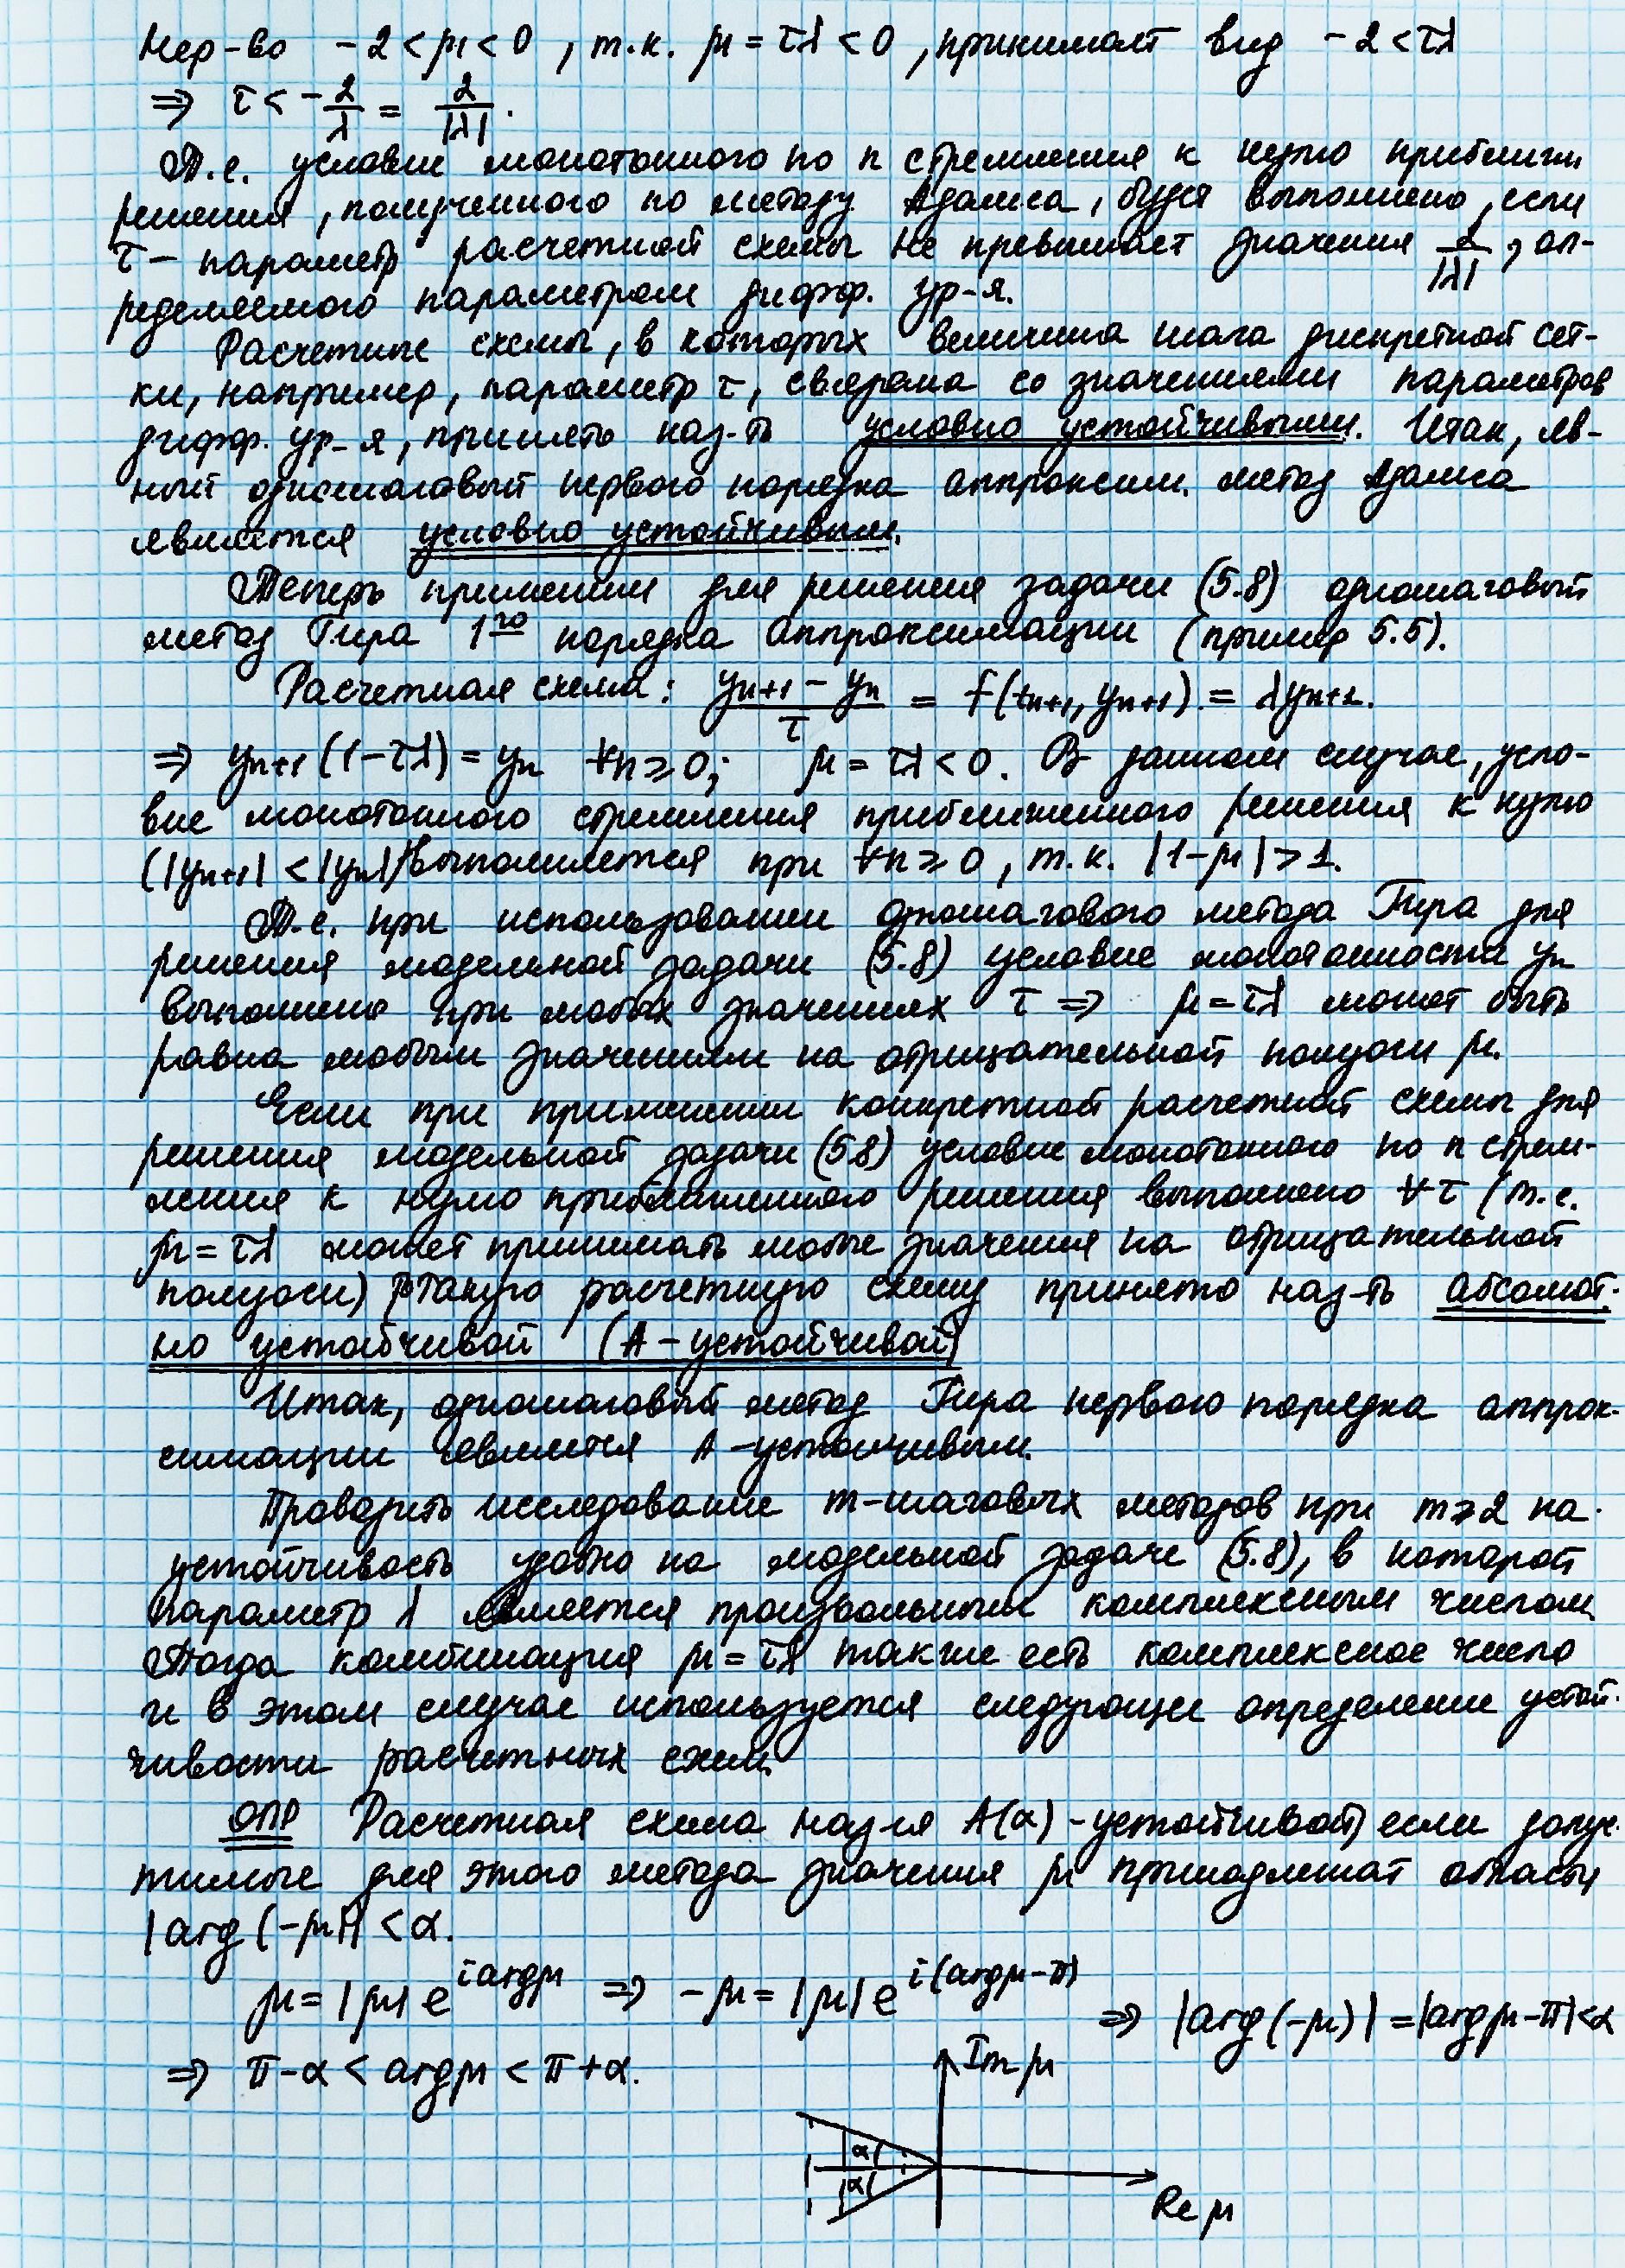 Нер-во -2 < μ < 0, т.к. μ = τλ < 0, принимает вид -2 < τλ
⇒ τ < -2/λ = 2/|λ|.
Т.е. условие монотонного по n стремления к нулю приближ.
решения, полученного по методу Адамса, будет выполнено, если
τ - параметр расчетной схемы не превышает значения 2/|λ|, оп-
ределяемого параметром дифф. ур-я.
Расчетные схемы, в которых величина шага дискретной сет-
ки, например, параметр τ, связана со значениями параметров
дифф. ур-я, принято наз-ть условно устойчивыми. Итак, яв-
ный одношаговый первого порядка аппроксим. метод Адамса
является условно устойчивым.
Теперь применим для решения задачи (5.8) одношаговый
метод Гира 1го порядка аппроксимации (пример 5.5).
Расчетная схема: (yn+1 - yn)/τ = f(tn+1, yn+1) = λyn+1.
⇒ yn+1(1-τλ) = yn ∀n ≥ 0; μ = τλ < 0. В данном случае, усло-
вие монотонного стремления приближенного решения к нулю
(|yn+1| < |yn|) выполняется при ∀n ≥ 0, т.к. |1-μ| > 1.
Т.е. при использовании одношагового метода Гира для
решения модельной задачи (5.8) условие монотонности yn
выполнено при любых значениях τ ⇒ μ = τλ может быть
равна любым значениям на отрицательной полуоси μ.
Если при применении конкретной расчетной схемы для
решения модельной задачи (5.8) условие монотонного по n стрем-
ления к нулю приближенного решения выполнено ∀τ (т.е.
μ = τλ может принимать любые значения на отрицательной
полуоси) такую расчетную схему принято наз-ть абсолют-
но устойчивой (А-устойчивой)
Итак, одношаговый метод Гира первого порядка аппрок-
симации является А-устойчивым.
Проводить исследование m-шаговых методов при m ≥ 2 на
устойчивость удобно на модельной задаче (5.8), в которой
параметр λ является произвольным комплексным числом.
Тогда комбинация μ = τλ также есть комплексное число
и в этом случае используется следующее определение устой-
чивости расчетных схем.
ОПР Расчетная схема наз-ся А(α)-устойчивой, если допус-
тимые для этого метода значения μ принадлежат области
|arg(-μ)| < α.
μ = |μ| e^{i argμ} ⇒ -μ = |μ| e^{i(argμ-π)} ⇒ |arg(-μ)| = |argμ-π| < α
⇒ π-α < argμ < π+α.
Im μ
α
α
Re μ